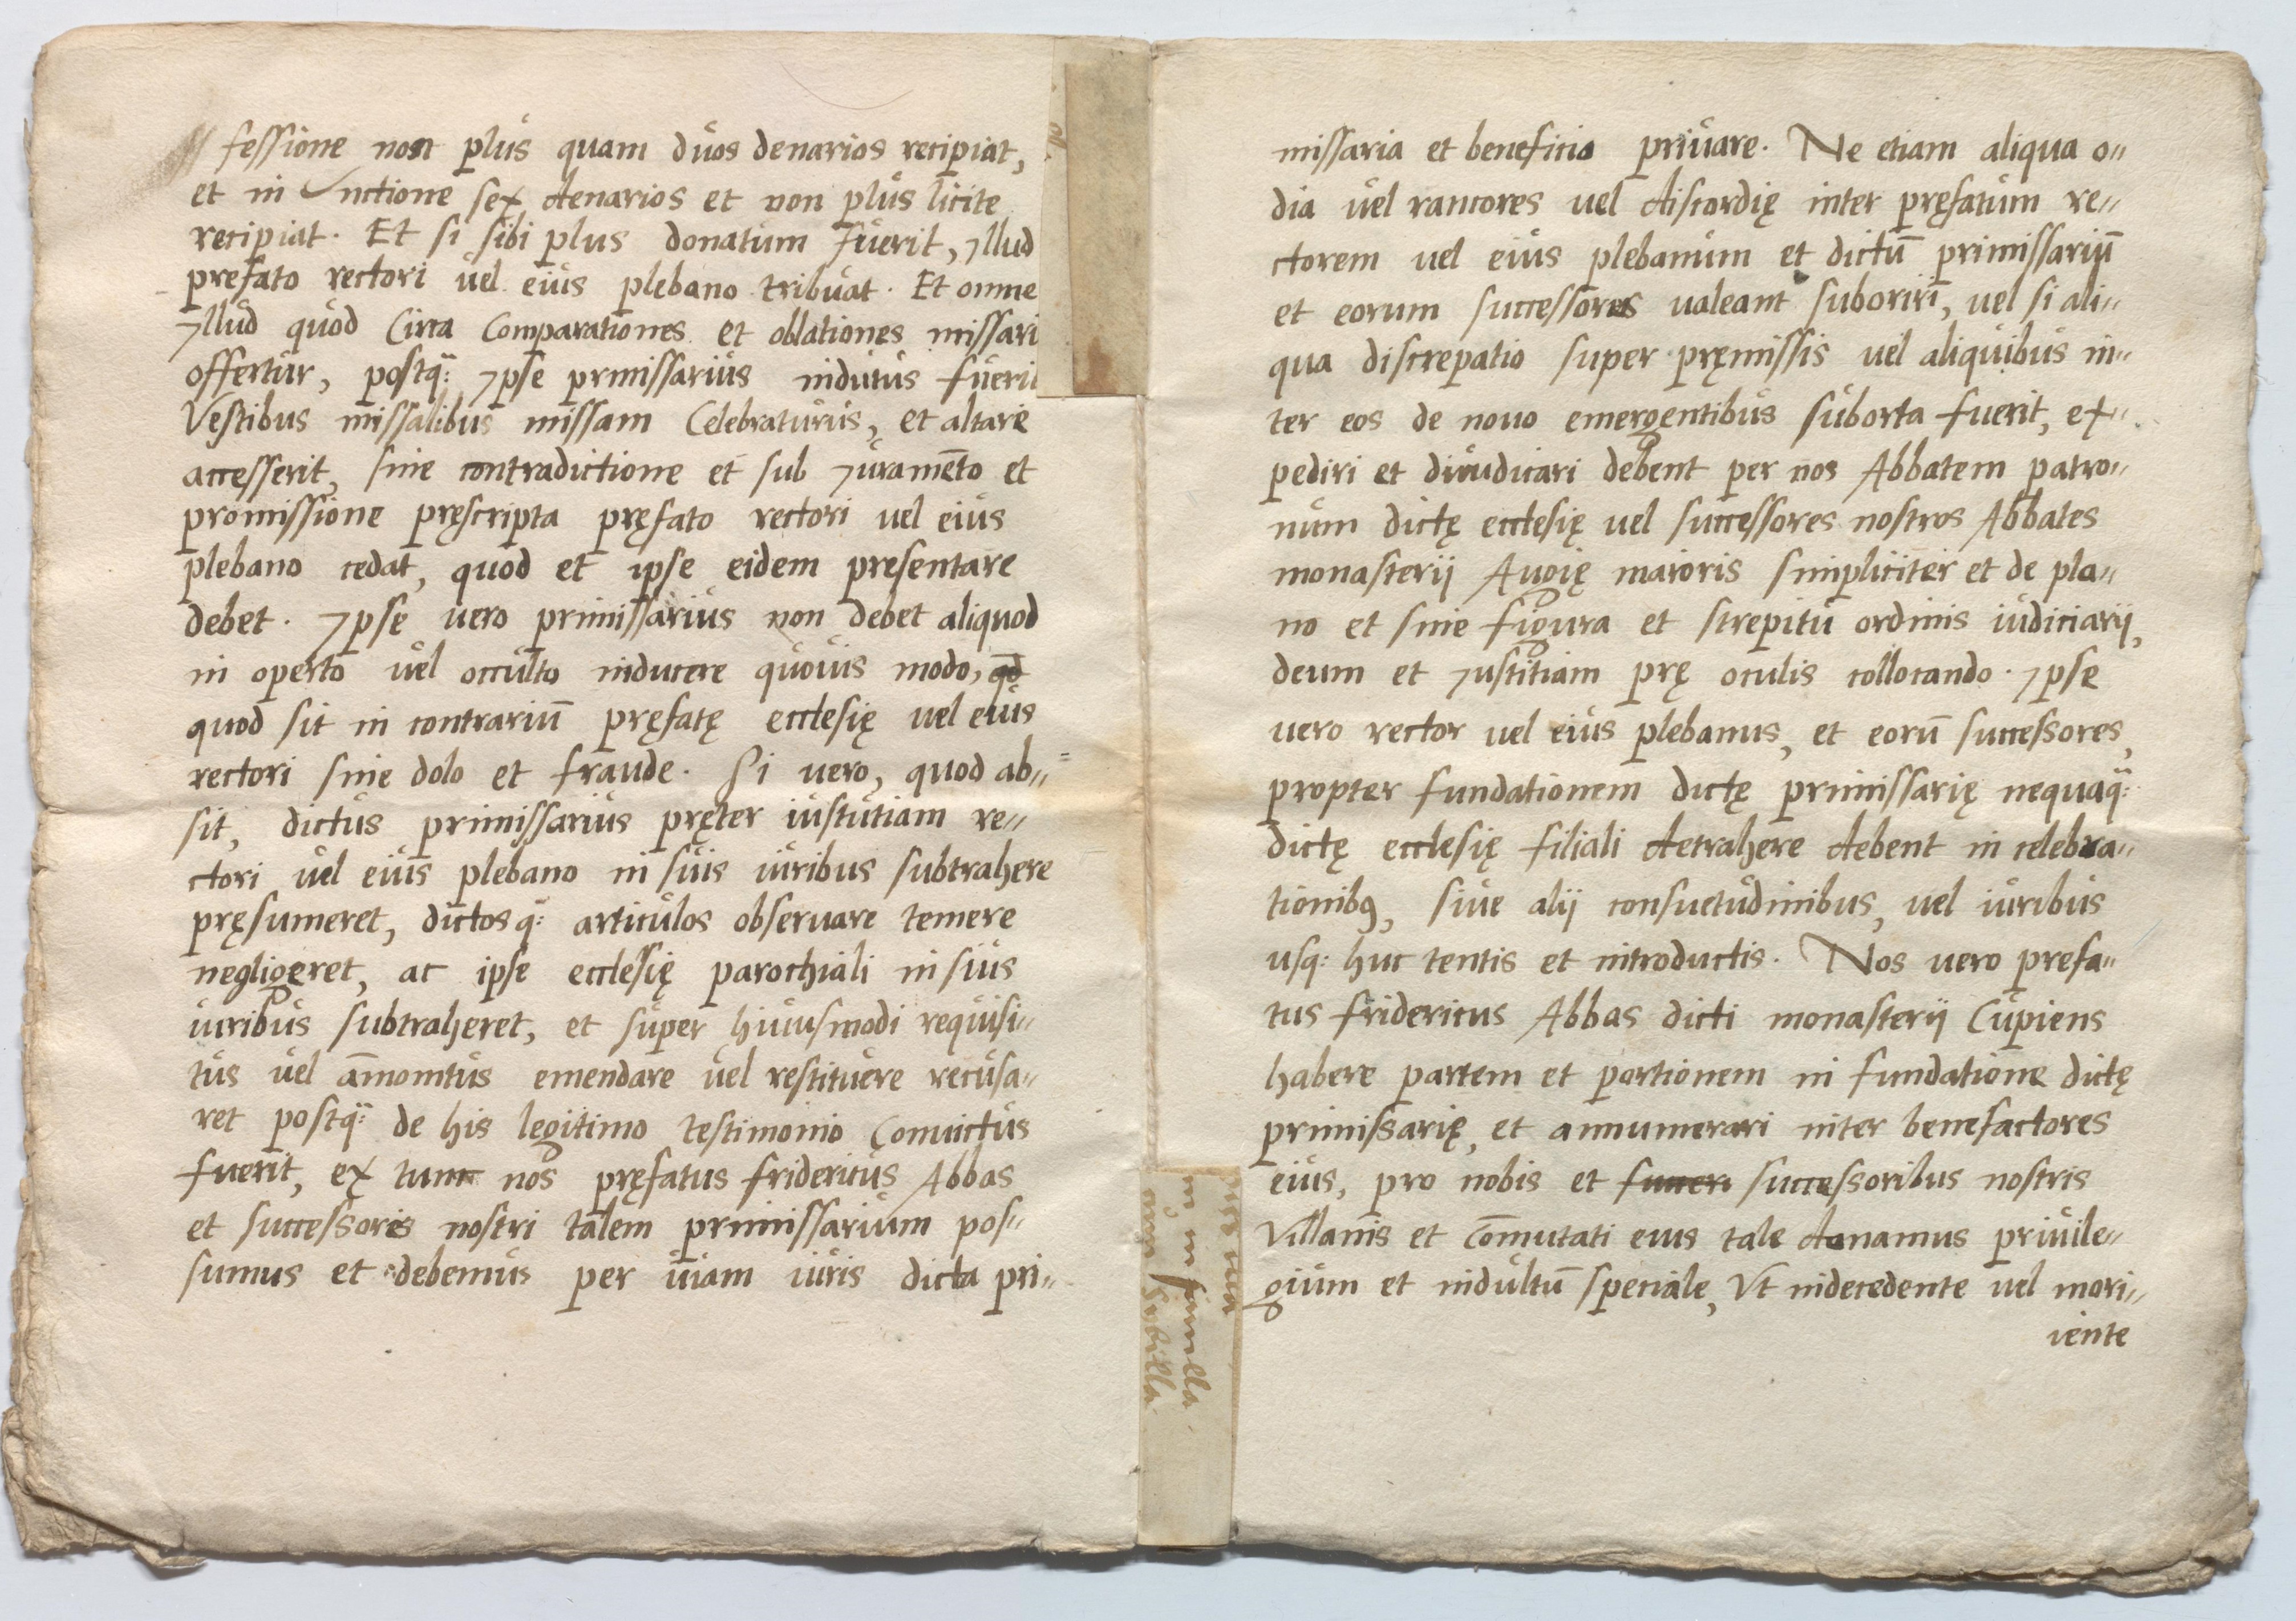 fessione non plus quam duos denarios recipiat,
et in Unctione sex denarios et non plus licite
recipiat. Et si sibi plus donatum fuerit, Illud
prefato rectori vel eius plebano tribuat. Et omne
Illud quod Circa Comparationes et oblationes missari
offertur, postq̃: Ipse prmissarius indutus fuerit
Vestibus missalibus missam Celebraturus, et altare
accesserit, sine contradictione et sub Iuramẽto et
promissione pręscripta pręfato rectori vel eius
plebano cedat, quod et ipse eidem presentare
debet. Ipse vero primissarius non debet aliquod
in operto vel occulto inducere quovis modo, qd
quod sit in contrariũ pręfatę ecclesię vel eius
rectori sine dolo et fraude. Si vero, quod ab„
sit, dictus primissarius pręter iustitiam re„
ctori vel eius plebano in suis iuribus subtrahere
pręsumeret, dictosq: articulos observare temere
negligeret, ac ipse ecclesię parochiali in suis
iuribus subtraheret, et super huiusmodi requisi„
tus vel am̃onitus emendare vel restituere recusa„
ret postq̃: de his legitimo testimonio Convictus
fuerit, ex tunc nos pręfatus fridericus Abbas
et successoris nostri talem primissarium pos„
sumus et debemus per viam iuris dicta pri„
missaria et beneficio privare. Ne etiam aliqua o„
dia vel rancores vel discordię inter pręfatum re„
ctorem vel eius plebanum et dictũ primissariũ
et eorum successores valeant suboriri, vel si ali„
qua discrepatio super pręmissis vel aliquibus in„
ter eos de novo emergentibus suborta fuerit, ex„
pediri et diiudicari debent per nos Abbatem patro„
num dictę ecclesię vel successores nostros Abbates
monasterij Augię maioris simpliciter et de pla„
no et sine figura et strepitu ordinis iudiciarij,
deum et Iustitiam prę oculis collocando. Ipse
vero rector vel eius plebanus, et eorũ successores,
propter fundationem dictę primissarię nequaq̃:
dictę ecclesię filiali detrahere debent in celebra„
tionibꝰ, sive alij consuetudinibus, vel iuribus
usq: huc tentis et introductis. Nos vero prefa„
tus fridericus Abbas dicti monasterij Cupiens
habere partem et portionem in fundatione dictę
primissarię, et annumerari inter benefactores
eius, pro nobis et succeri successoribus nostris
Villanis et com̃utati eius tale donamus privile„
gium et indultũ speciale, Ut indecedente vel mori„
iente